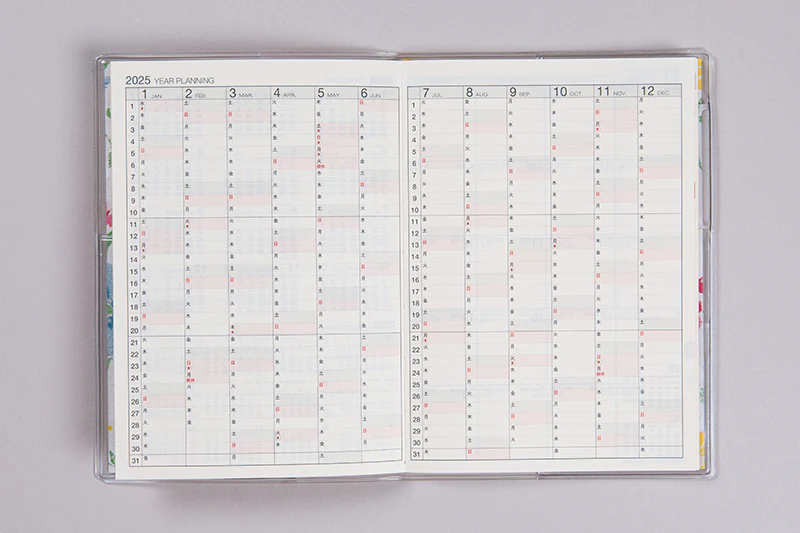 2025 YEAR PLANNING
1 JAN. 2 FEB. 3 MAR. 4 APR. 5 MAY 6 JUN.
1 水 土 土 火 木 日
2 木 日 日 水 金 月
3 金 月 月 木 土 火
4 土 火 火 金 日 水
5 日 水 水 土 月 木
6 月 木 木 日 火 振休 金
7 火 金 金 月 水 土
8 水 土 土 火 木 日
9 木 日 日 水 金 月
10 金 月 月 木 土 火
11 土 火 火 金 日 水
12 日 水 水 土 月 木
13 月 木 木 日 火 金
14 火 金 金 月 水 土
15 水 土 土 火 木 日
16 木 日 日 水 金 月
17 金 月 月 木 土 火
18 土 火 火 金 日 水
19 日 水 水 土 月 木
20 月 木 木 日 火 金
21 火 金 金 月 水 土
22 水 土 土 火 木 日
23 木 日 日 水 金 月
24 金 月 振休 月 木 土 火
25 土 火 火 金 日 水
26 日 水 水 土 月 木
27 月 木 木 日 火 金
28 火 金 金 月 水 土
29 水 土 火 木 日
30 木 日 水 金 月
31 金 月 土
7 JUL. 8 AUG. 9 SEP. 10 OCT. 11 NOV. 12 DEC.
1 火 金 月 水 土 月
2 水 土 火 木 日 火
3 木 日 水 金 月 水
4 金 月 木 土 火 木
5 土 火 金 日 水 金
6 日 水 土 月 木 土
7 月 木 日 火 金 日
8 火 金 月 水 土 月
9 水 土 火 木 日 火
10 木 日 水 金 月 水
11 金 月 木 土 火 木
12 土 火 金 日 水 金
13 日 水 土 月 木 土
14 月 木 日 火 金 日
15 火 金 月 水 土 月
16 水 土 火 木 日 火
17 木 日 水 金 月 水
18 金 月 木 土 火 木
19 土 火 金 日 水 金
20 日 水 土 月 木 土
21 月 木 日 火 金 日
22 火 金 月 水 土 月
23 水 土 火 木 日 火
24 木 日 水 金 月 振休 水
25 金 月 木 土 火 木
26 土 火 金 日 水 金
27 日 水 土 月 木 土
28 月 木 日 火 金 日
29 火 金 月 水 土 月
30 水 土 火 木 日 火
31 木 日 金 水